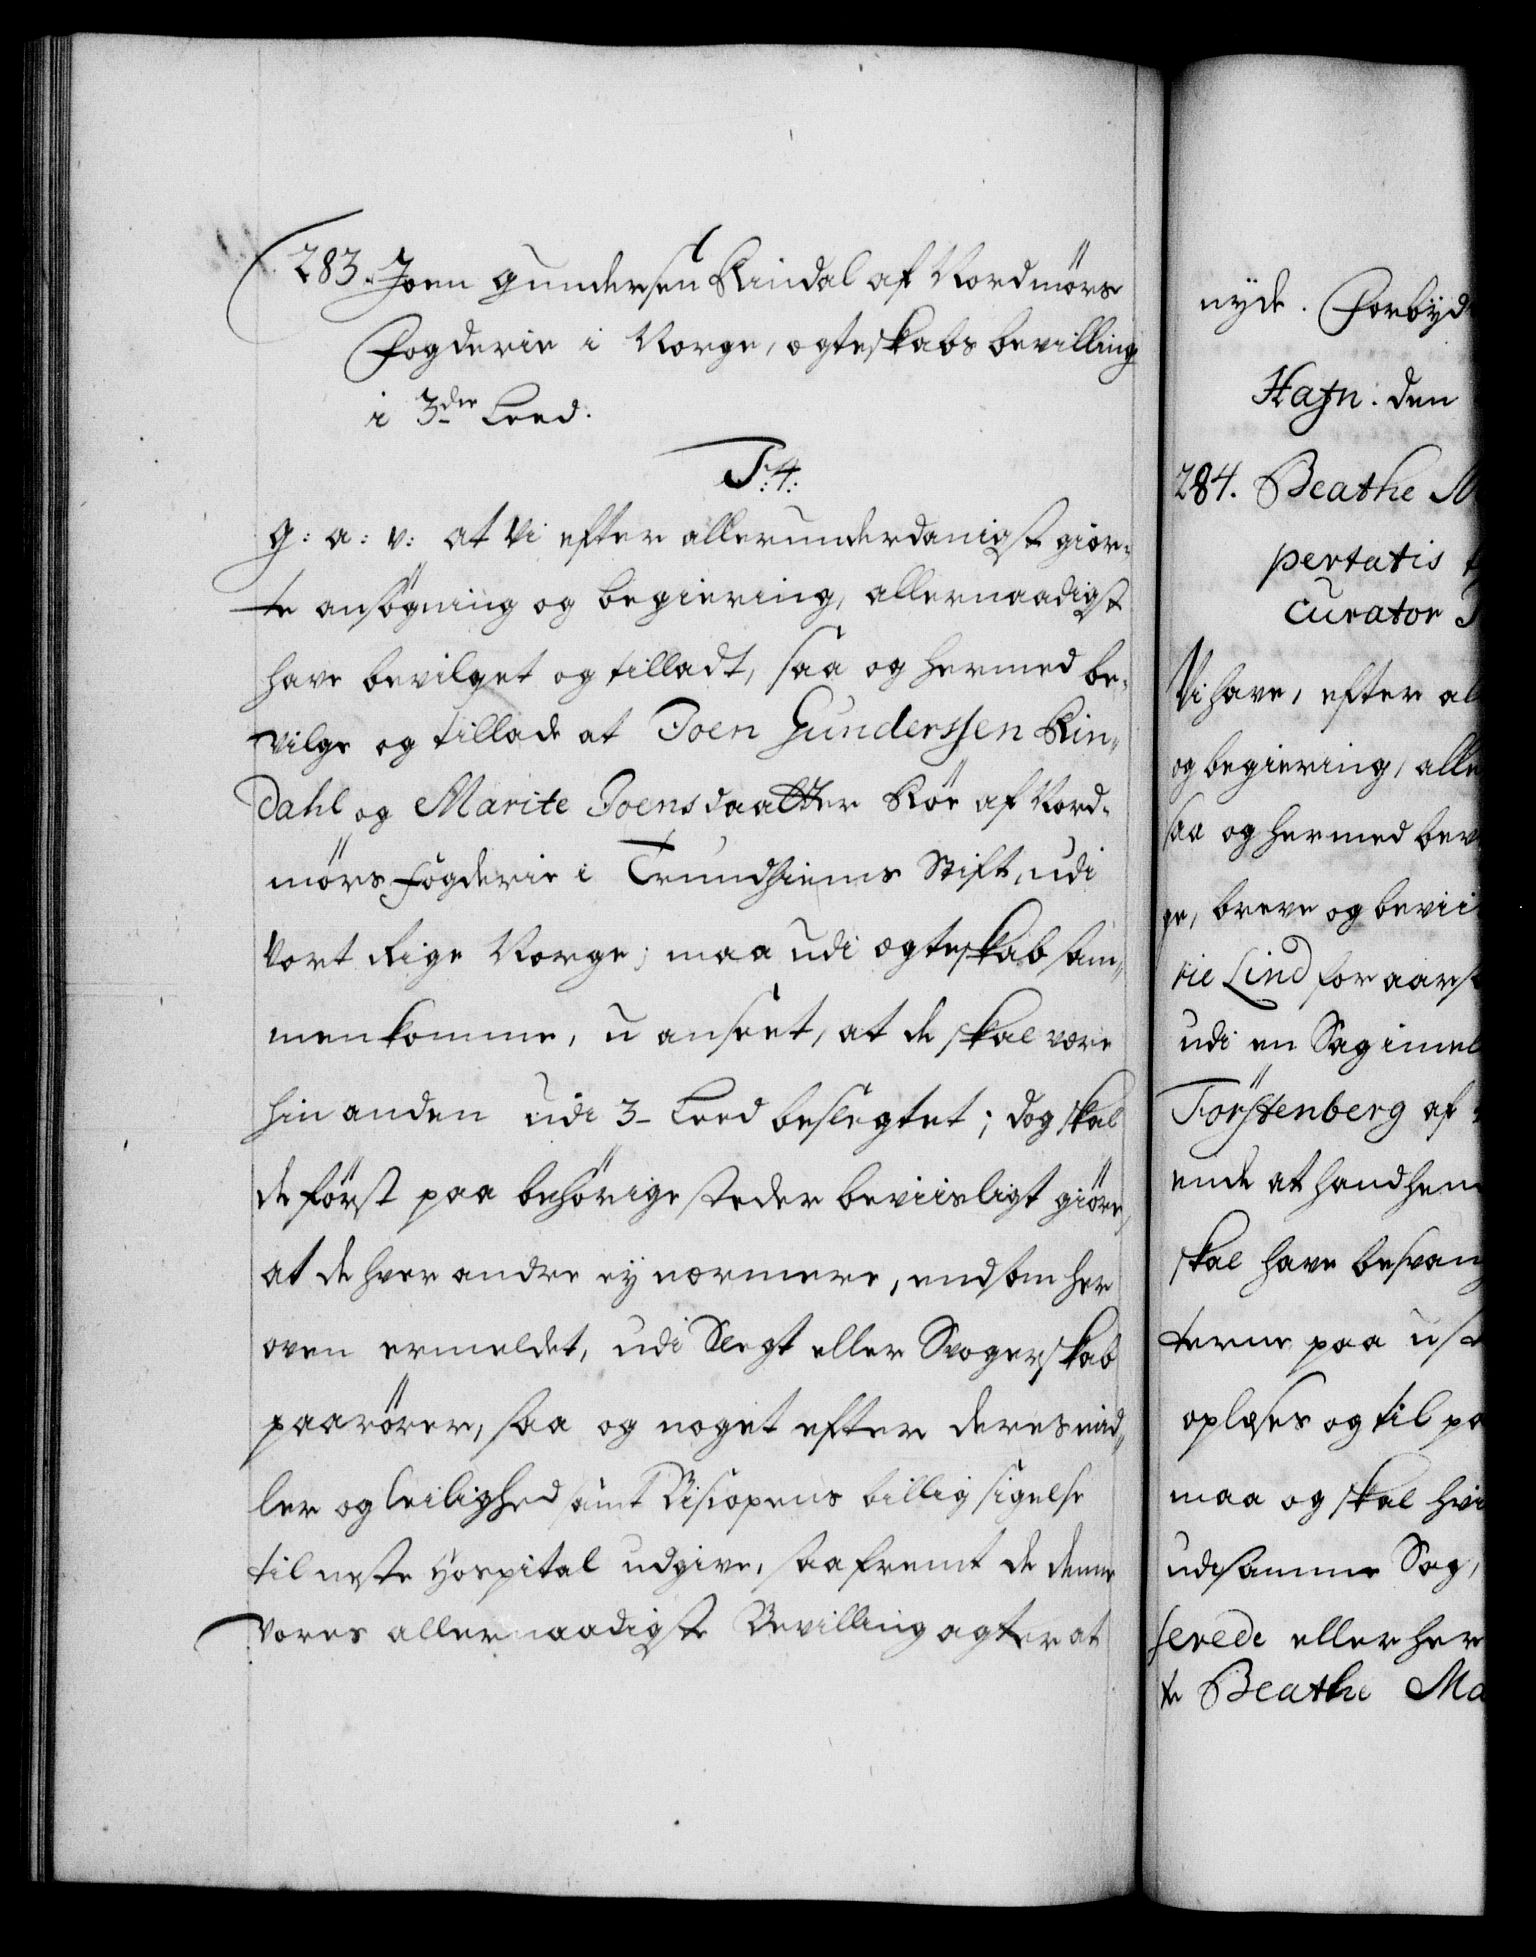 283. Joen Gundersen Rindal af Nordmørs
Fogderie i Norge, ægteskabs bevilling
i 3der Leed.
F:4:
G: a: v: at Vi efter allerunderdanigst giør-
te ansøgning og begiering, allernaadigst
have bevilget og tilladt, saa og hermed be-
vilge og tillade at Joen Gunderssen Rin-
dahl og Marite Joensdaatter Röe af Nord-
mörs fogderie i Trundhiems Stift, udi
Vort Rige Norge; maa udi ægteskab sam-
menkomme, u anseet, at de skal være
hin anden udi 3- Leed beslegtet; dog skal
de först paa behörige steder beviisligt giöre,
at de hver andre ey nærmere, end som her
oven ermeldet, udi Slegt eller Svogerskab
paarörer, saa og noget efter deres mid-
ler og leilighed samt Biscopens billig sigelse
til neste Hospital udgive, saafremt de denne
Vores allernaadigste Bevilling agter at
nyde. Forbyd
Hafn: den
284. Beathe M
pertatis
curator
Vi have, efter al
og begiering, alle
saa og hermed bev
ge, breve og bevii
rie Lind for aars
udi en Sag imel
Förstenberg af
ende at hand hen
skal have besvan
terne paa
oplæses og til pa
maa og skal hvi
udi samme Sag,
serede eller her
te Beathe Ma